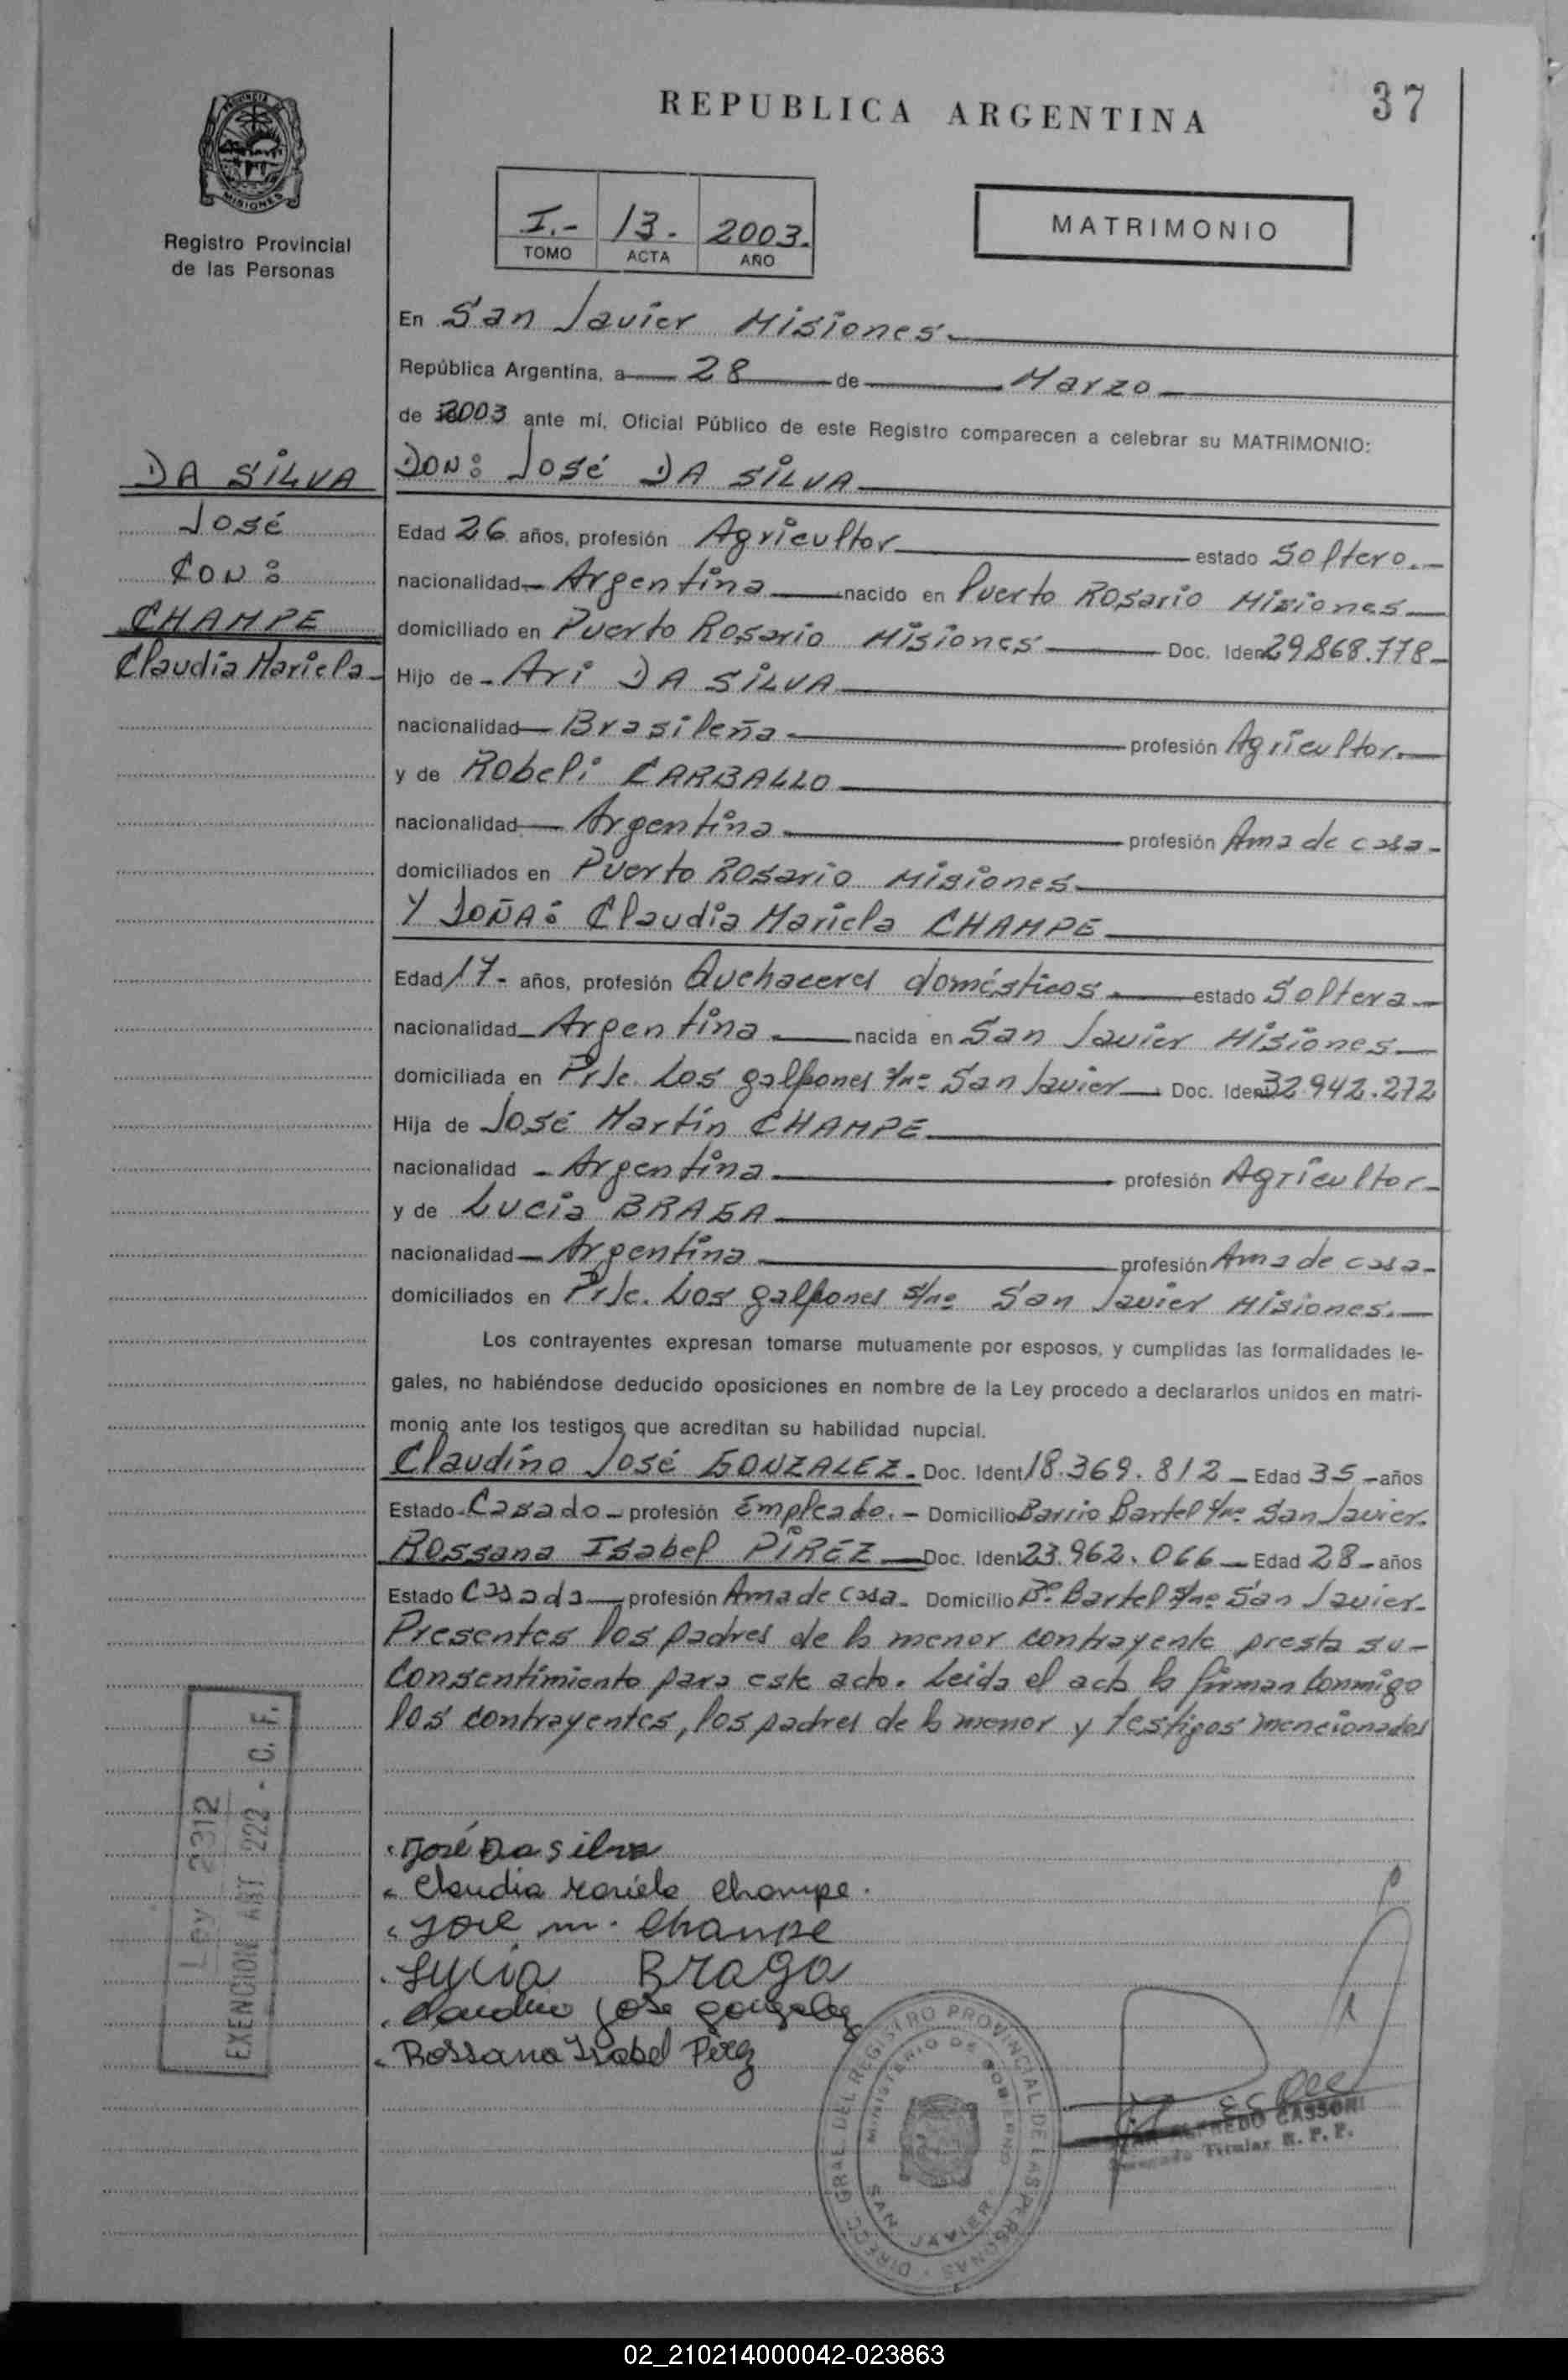 37
REPUBLICA ARGENTINA
PROVINCIA DE
MISIONES
Registro Provincial
de las Personas
I.- 13.- 2003.
TOMO ACTA AÑO
MATRIMONIO
En San Javier Misiones
República Argentina, a 28 de Marzo
de 2003 ante mí, Oficial Público de este Registro comparecen a celebrar su MATRIMONIO:
DA SILVA
José
CON:
CHAMPE
Claudia Mariela
DON: José DA SILVA
Edad 26 años, profesión Agricultor estado Soltero.-
nacionalidad Argentina nacido en Puerto Rosario Misiones
domiciliado en Puerto Rosario Misiones Doc. Iden 29.868.778-
Hijo de - Ari DA SILVA
nacionalidad Brasileña profesión Agricultor.
y de Robeli CARBALLO
nacionalidad Argentina profesión Ama de casa-
domiciliados en Puerto Rosario Misiones
Y DOÑA: Claudia Mariela CHAMPE
Edad 17- años, profesión Quehaceres domésticos estado Soltera
nacionalidad Argentina nacida en San Javier Misiones
domiciliada en Prje. Los galpones s/nº San Javier Doc. Iden 32.942.272
Hija de José Martín CHAMPE
nacionalidad - Argentina profesión Agricultor-
y de Lucia BRAGA
nacionalidad Argentina profesión Ama de casa-
domiciliados en Prje. Los galpones s/nº San Javier Misiones.
Los contrayentes expresan tomarse mutuamente por esposos, y cumplidas las formalidades le-
gales, no habiéndose deducido oposiciones en nombre de la Ley procedo a declararlos unidos en matri-
monio ante los testigos que acreditan su habilidad nupcial.
Claudino José GONZALEZ- Doc. Ident 18.369.812 - Edad 35 - años
Estado Casado - profesión Empleado.- Domicilio Barrio Bartel s/nº San Javier.
Rossana Isabel PIREZ Doc. Iden 23.962.066 - Edad 28 - años
Estado Casada profesión Ama de casa- Domicilio Bº Bartel s/nº San Javier-
Presentes los padres de la menor contrayente presta su-
consentimiento para este acto. Leida el acta la firman conmigo
los contrayentes, los padres de la menor y testigos mencionados
Ley 2312
EXENCION ART 222 - C. F.
José Da silva
Claudia Mariela Champe.
José m. Champe
Lucia Braga
Claudino José gonzalez
Rossana Isabel Pirez
DIRECC. GRAL. DEL REGISTRO PROVINCIAL DE LAS PERSONAS
MINISTERIO DE GOBIERNO
SAN JAVIER
ALFREDO CASSONI
Titular R. P. P.
02_210214000042-023863